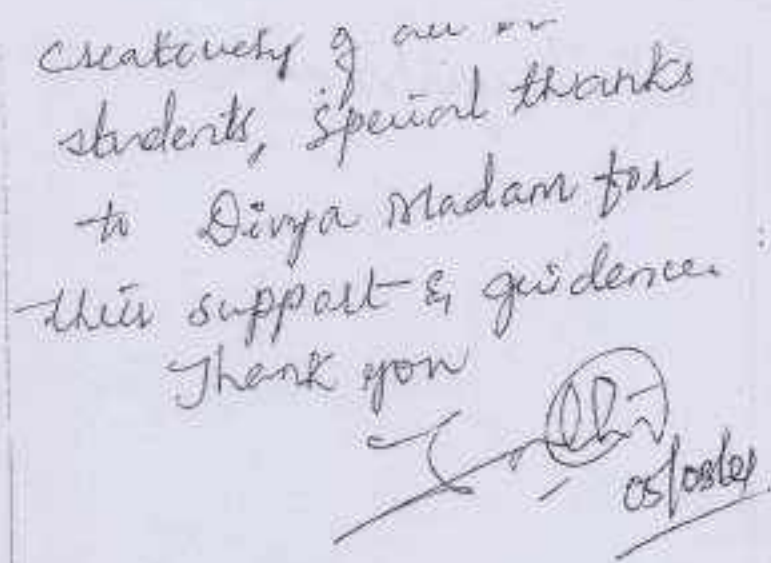 creatively of our
students, special thanks
to Divya Madam for
their support & guidence.
Thank you